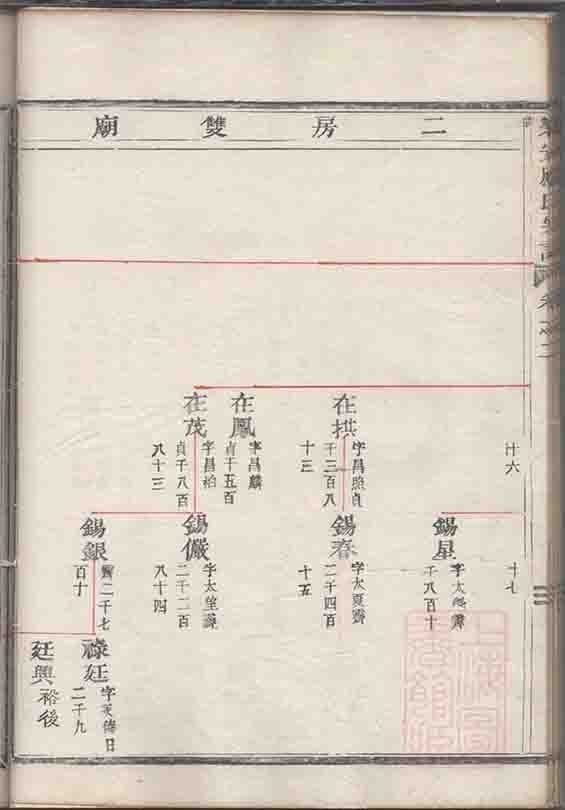 二房雙廟
卷之二
卄六
在拱
字昌照貞
千三百八
十三
在鳳
字昌麟
貞千五百
在茂
字昌柏
貞千八百
八十三
十七
錫星
千八百十
錫春
字太夏齊
二千四百
十五
錫儼
二千二百
八十四
錫銀
齊二千七
百十
祿廷
二千九
廷興
裕後